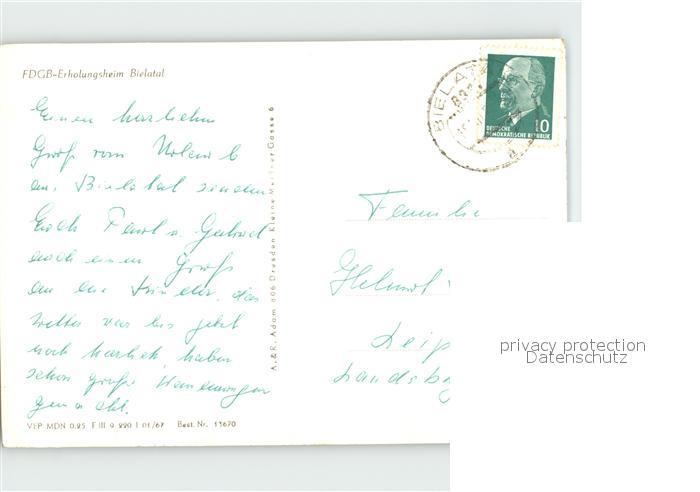 FDGB-Erholungsheim Bielatal
Einen herzlichen
Gruß vom Urlaub
aus Bielatal senden
Euch Paul u. Gertrud
auch einen Gruß
an die Kinder, das
Wetter war bis jetzt
noch herrlich, haben
schon große Wanderungen
gemacht.
VEP MDN 0.25 F III 9 220 1 01/67 Best. Nr. 13670
A. & R. Adam 806 Dresden Kleine Meißner Gasse 6
BIELATAL
DEUTSCHE 10
DEMOKRATISCHE REPUBLIK
Familie
Helmut
Leip
Landsbg
privacy protection
Datenschutz